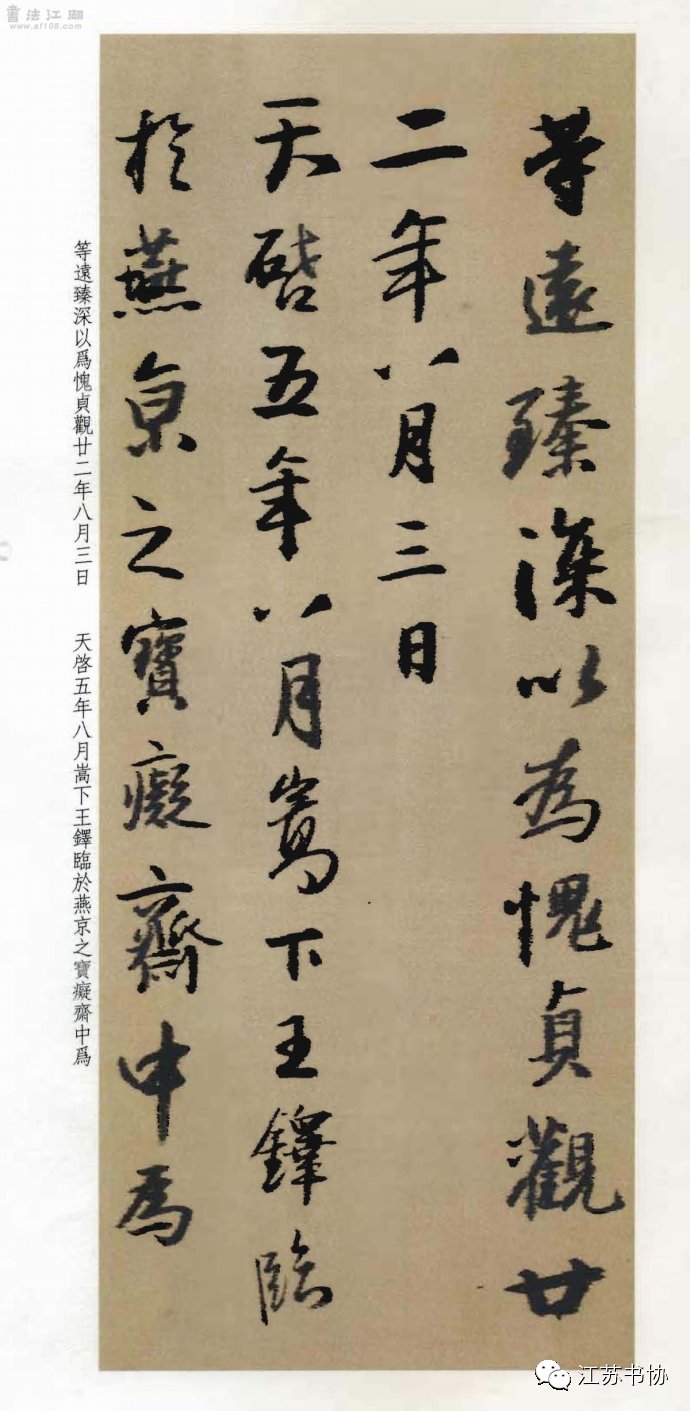 書法江湖
www.sf108.com
等遠臻深以為愧貞觀廿
二年八月三日
天啓五年八月嵩下王鐸臨
於燕京之寶癡齋中為
等遠臻深以爲愧貞觀廿二年八月三日 天啓五年八月嵩下王鐸臨於燕京之寶癡齋中爲
江苏书协